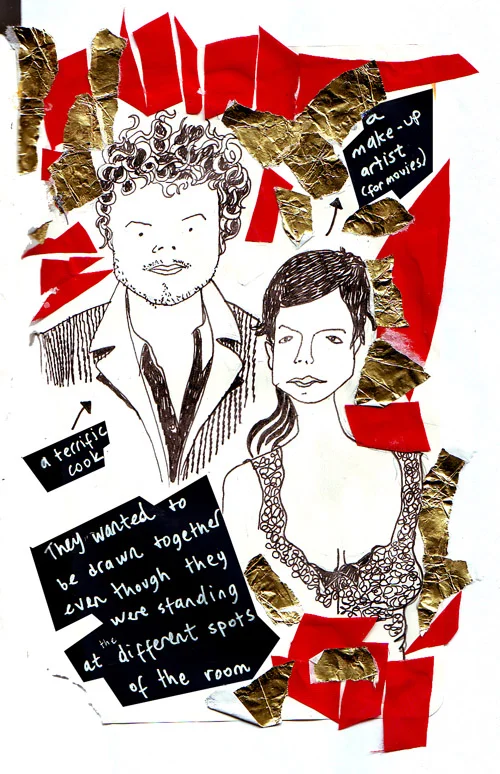 a
make-up
artist
(for movies)
a terrific
cook
They wanted to
be drawn together
even though they
were standing
at the different spots
of the room